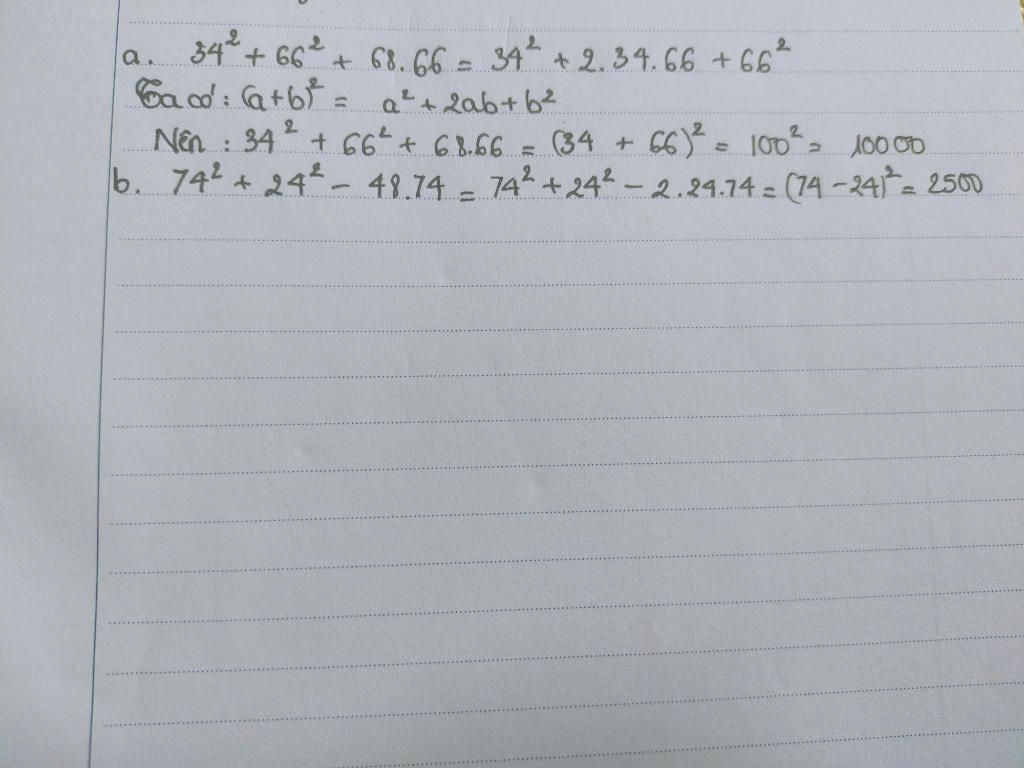 a. 34² + 66² + 68.66 = 34² + 2.34.66 + 66²
Ta có: (a+b)² = a² + 2ab + b²
Nên : 34² + 66² + 68.66 = (34 + 66)² = 100² = 10000
b. 74² + 24² - 48.74 = 74² + 24² - 2.24.74 = (74 - 24)² = 2500